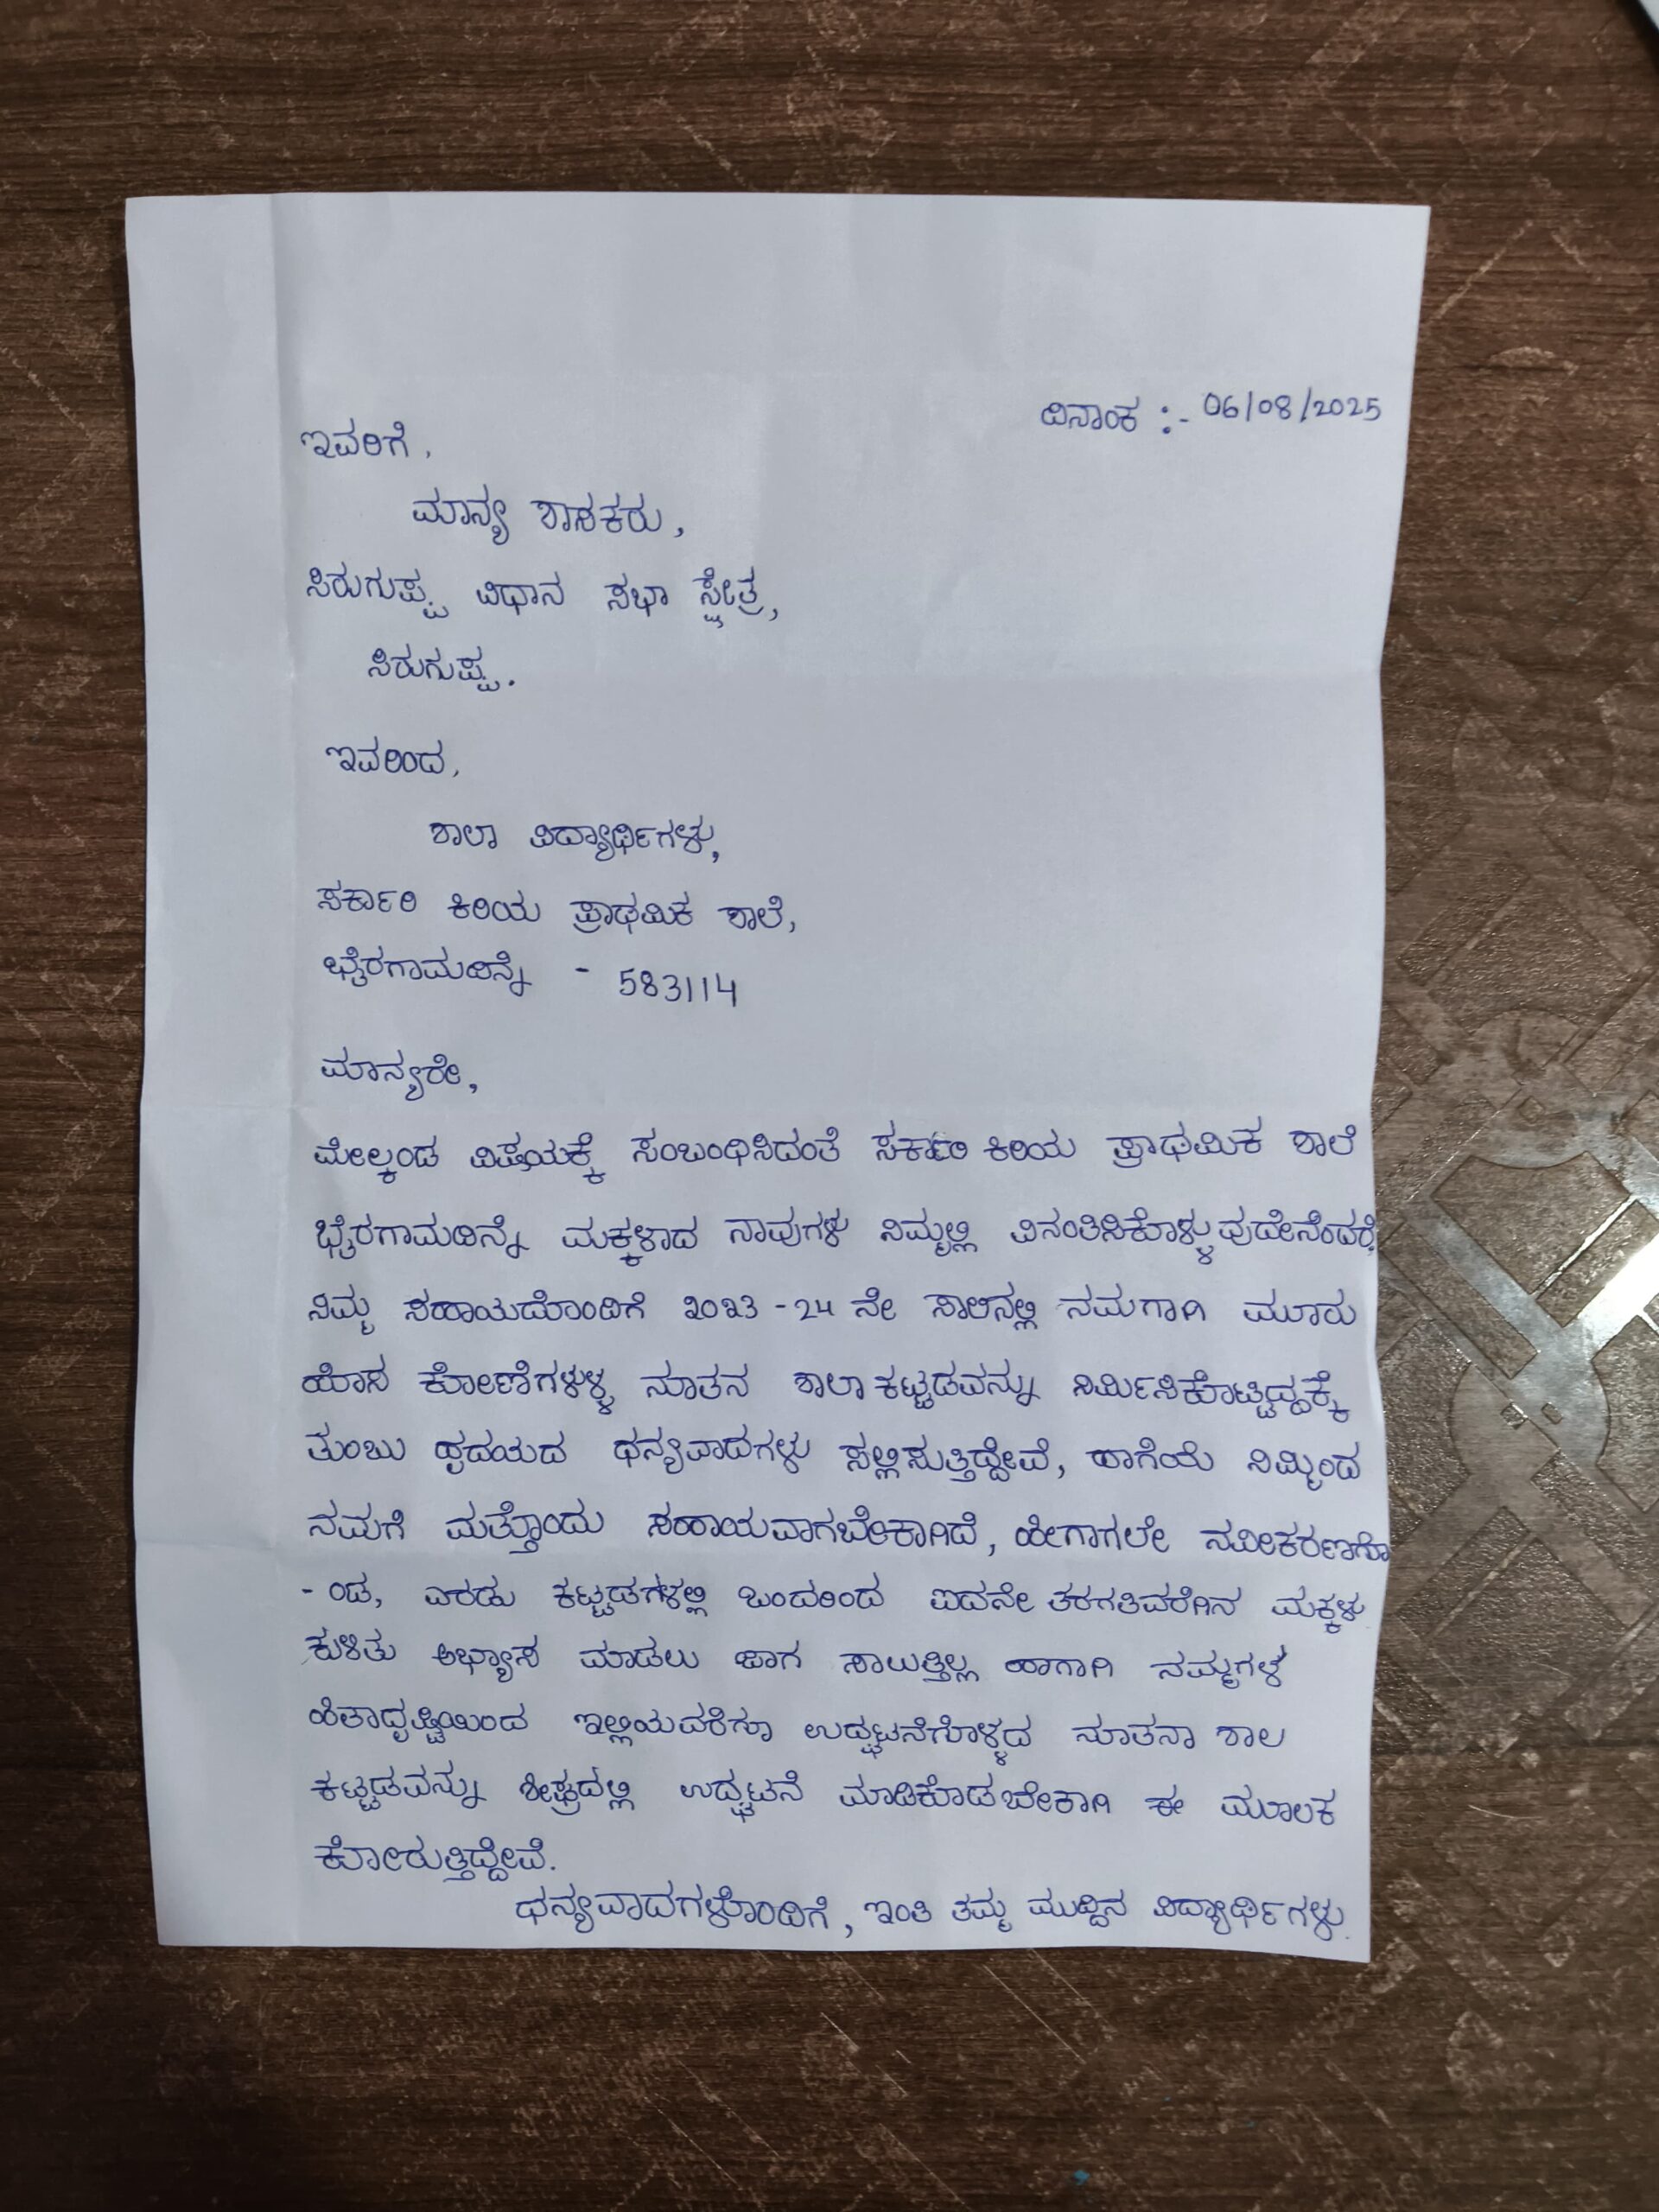 ದಿನಾಂಕ :- 06/08/2025
ಇವರಿಗೆ,
ಮಾನ್ಯ ಶಾಸಕರು,
ಸಿರುಗುಪ್ಪ ವಿಧಾನ ಸಭಾ ಕ್ಷೇತ್ರ,
ಸಿರುಗುಪ್ಪ.
ಇವರಿಂದ,
ಶಾಲಾ ವಿದ್ಯಾರ್ಥಿಗಳು,
ಸರ್ಕಾರಿ ಕಿರಿಯ ಪ್ರಾಥಮಿಕ ಶಾಲೆ,
ಭೈರಗಾಮದಿನ್ನೆ - 583114
ಮಾನ್ಯರೇ,
ಮೇಲ್ಕಂಡ ವಿಷಯಕ್ಕೆ ಸಂಬಂಧಿಸಿದಂತೆ ಸರ್ಕಾರಿ ಕಿರಿಯ ಪ್ರಾಥಮಿಕ ಶಾಲೆ
ಭೈರಗಾಮದಿನ್ನೆ ಮಕ್ಕಳಾದ ನಾವುಗಳು ನಿಮ್ಮಲ್ಲಿ ವಿನಂತಿಸಿಕೊಳ್ಳುವುದೇನೆಂದರೆ,
ನಿಮ್ಮ ಸಹಾಯದೊಂದಿಗೆ ೨೦೨೩-24 ನೇ ಸಾಲಿನಲ್ಲಿ ನಮಗಾಗಿ ಮೂರು
ಹೊಸ ಕೋಣೆಗಳುಳ್ಳ ನೂತನ ಶಾಲಾ ಕಟ್ಟಡವನ್ನು ನಿರ್ಮಿಸಿಕೊಟ್ಟಿದ್ದಕ್ಕೆ
ತುಂಬು ಹೃದಯದ ಧನ್ಯವಾದಗಳು ಸಲ್ಲಿಸುತ್ತಿದ್ದೇವೆ, ಹಾಗೆಯೆ ನಿಮ್ಮಿಂದ
ನಮಗೆ ಮತ್ತೊಂದು ಸಹಾಯವಾಗಬೇಕಾಗಿದೆ, ಹೇಗಾಗಲೇ ನವೀಕರಣಗೊ
-ಂಡ, ಎರಡು ಕಟ್ಟಡಗಳಲ್ಲಿ ಒಂದರಿಂದ ಐದನೇ ತರಗತಿವರೆಗಿನ ಮಕ್ಕಳು
ಕುಳಿತು ಅಭ್ಯಾಸ ಮಾಡಲು ಜಾಗ ಸಾಲುತ್ತಿಲ್ಲ ಹಾಗಾಗಿ ನಮ್ಮಗಳ
ಹಿತಾದೃಷ್ಟಿಯಿಂದ ಇಲ್ಲಿಯವರೆಗೂ ಉದ್ಘಟನೆಗೊಳ್ಳದ ನೂತನಾ ಶಾಲ
ಕಟ್ಟಡವನ್ನು ಶೀಘ್ರದಲ್ಲಿ ಉದ್ಘಟನೆ ಮಾಡಿಕೊಡಬೇಕಾಗಿ ಈ ಮೂಲಕ
ಕೋರುತ್ತಿದ್ದೇವೆ.
ಧನ್ಯವಾದಗಳೊಂದಿಗೆ, ಇಂತಿ ತಮ್ಮ ಮುದ್ದಿನ ವಿದ್ಯಾರ್ಥಿಗಳು.